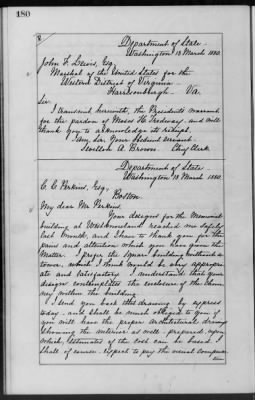 180
Department of State
Washington 13 March 1880.
John F. Lewis, Esq.
Marshal of the United States for the
Western District of Virginia
Harrisonburgh. Va.
Sir:
I transmit herewith, the President's warrant
for the pardon of Moses H. Tredway and will
thank you to acknowledge its receipt.
I am, Sir, Your Obedient servant.
Sevellon A. Brown. Chief Clerk
Department of State
Washington 13 March 1880.
C. C. Perkins, Esq.,
Boston.
My dear Mr Perkins,
Your designs for the Memorial
building at reached me safely
last month, and I have to thank you for the
pains and attention which you have given the
Matter. I prefer the square building without a
tower, which I think would be very appropri
ate and satisfactory. I understand that your
design contemplates the enclosure of the
within the building.
I send you back the drawing by express
today, and shall be much obliged to you if
you will have the proper Architectural drawings
showing the interior as well prepared, upon
which, estimates of the cost can be based. I
shall of course, expect to pay the usual